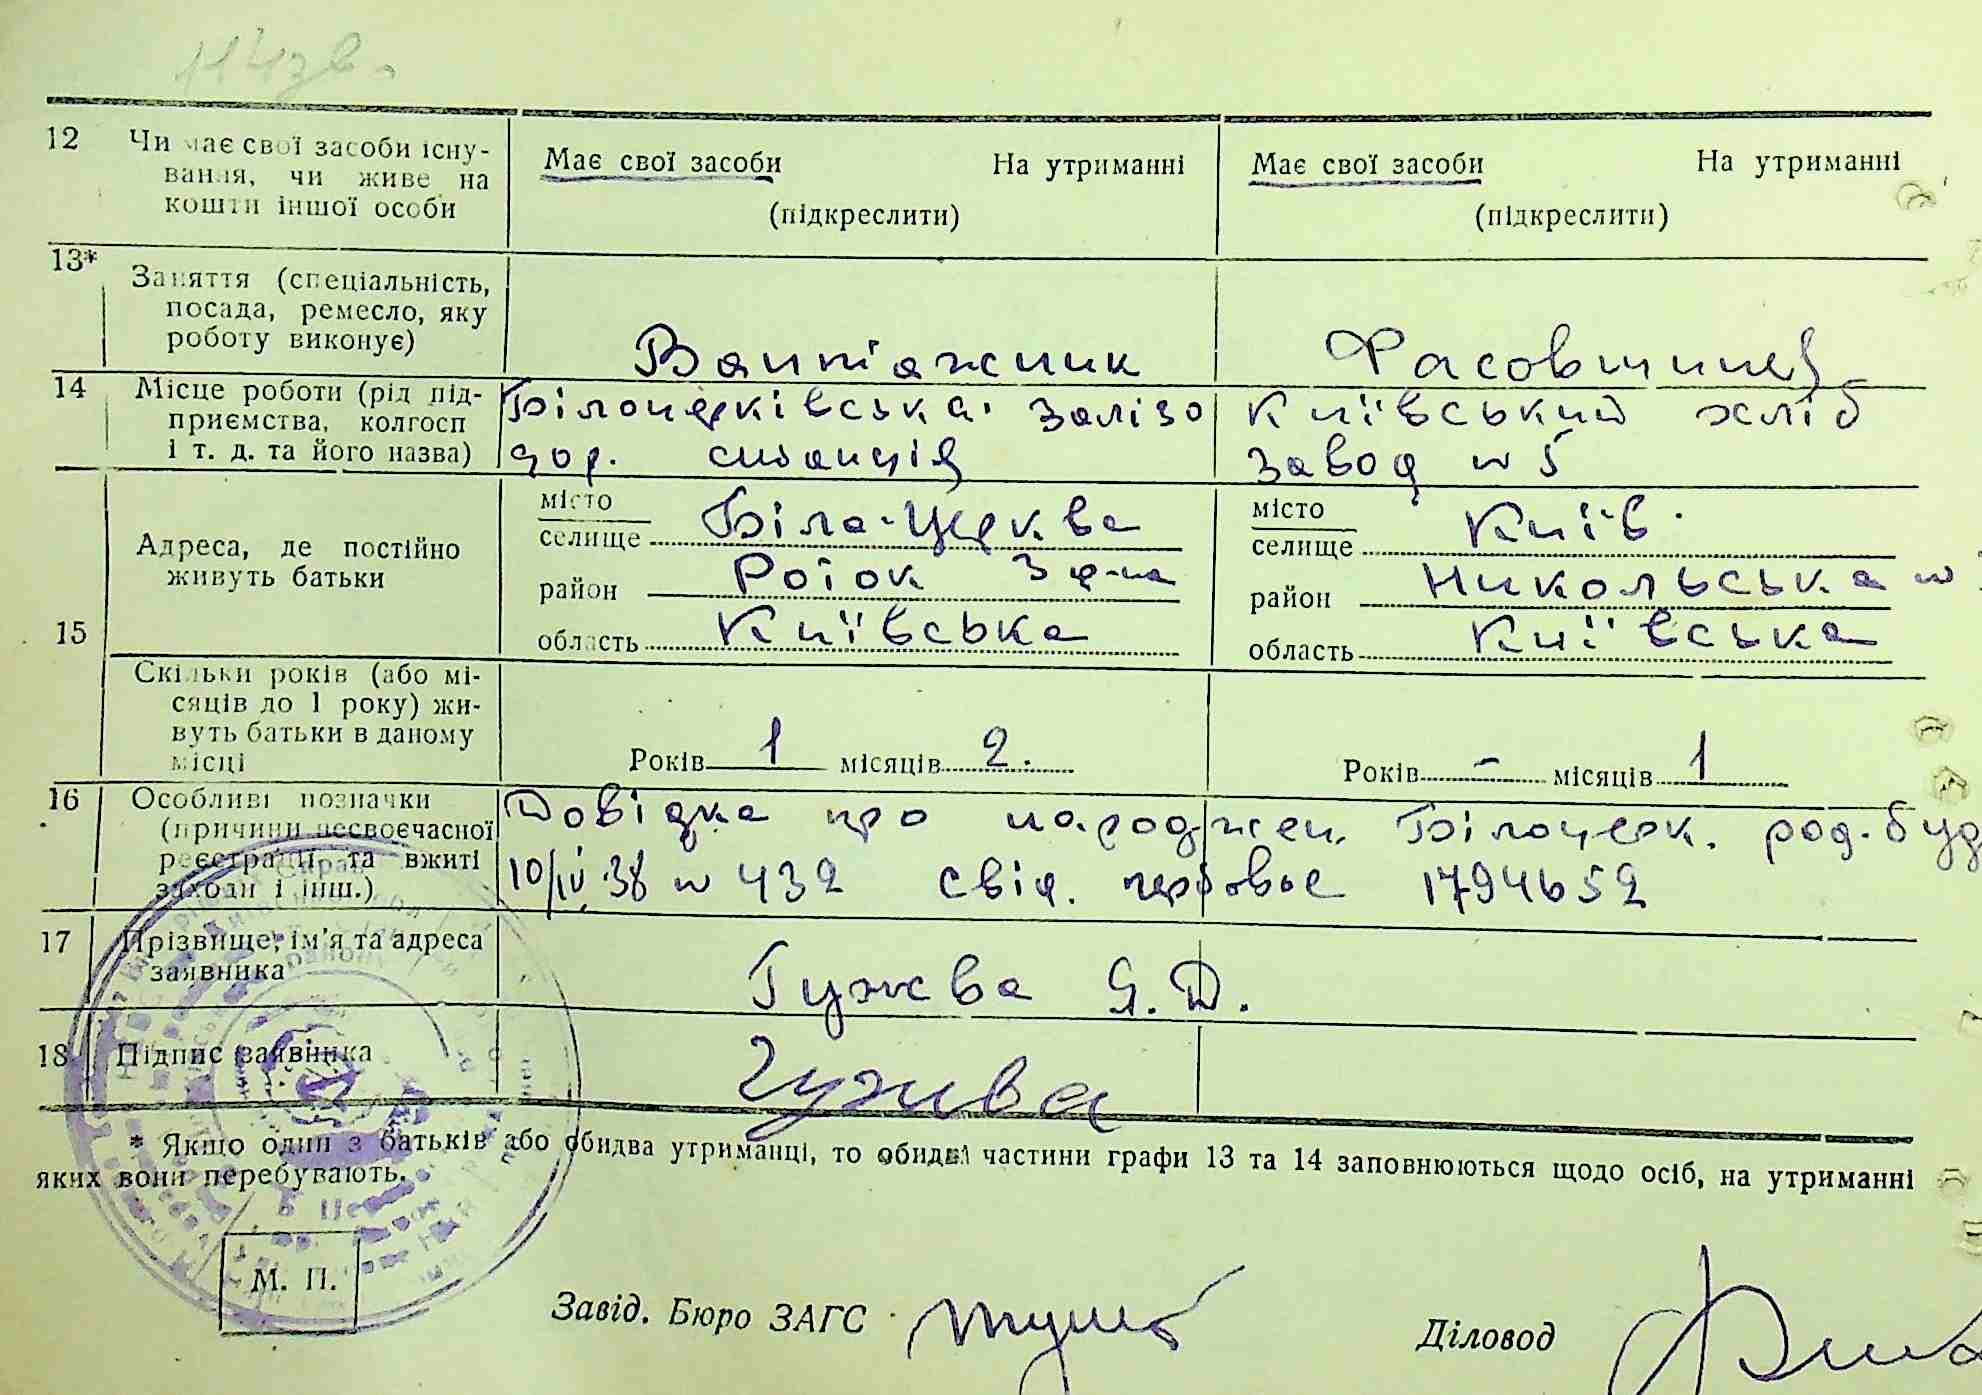 12 Чи має свої засоби існу- Має свої засоби На утриманні Має свої засоби На утриманні
вання, чи живе на
кошти іншої особи (підкреслити) (підкреслити)
13* Заняття (спеціальність,
посада, ремесло, яку
роботу виконує) Вантажник Фасовщиця
14 Місце роботи (рід під- Білоцерківська залізо Київський хліб
приємства, колгосп
і т. д. та його назва) дор. станція завод № 5
15 Адреса, де постійно
живуть батьки
місто
селище Біла-Церква
район Роток
область Київська
місто
селище Київ
район Никольська №
область Київська
Скільки років (або мі-
сяців до 1 року) жи-
вуть батьки в даному
місці Років 1 місяців 2. Років - місяців 1
16 Особливі позначки Довідка про народжен. Білоцерк. род. буд
(причини несвоєчасної
реєстрації та вжиті 10/IV.38 № 432 свід. первовое 1794652
заходи і інш.)
17 Прізвище, ім'я та адреса
заявника Гужва Я. Д.
18 Підпис заявника Гужва
* Якщо один з батьків або обидва утриманці, то обидві частини графи 13 та 14 заповнюються щодо осіб, на утриманні
яких вони перебувають.
М. П.
Завід. Бюро ЗАГС Діловод